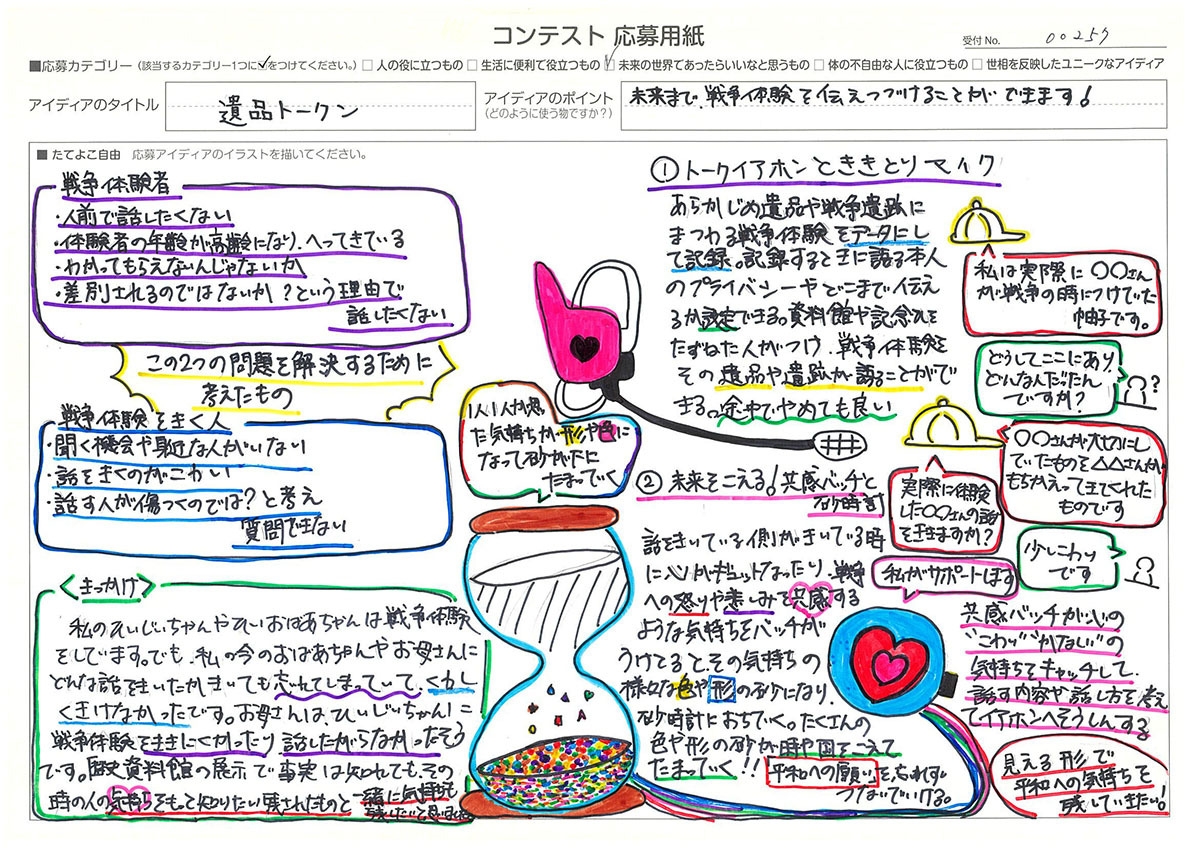 コンテスト 応募用紙
受付No. 00257
■応募カテゴリー（該当するカテゴリー1つに✓をつけてください。）□ 人の役に立つもの □ 生活に便利で役立つもの ☑ 未来の世界であったらいいなと思うもの □ 体の不自由な人に役立つもの □ 世相を反映したユニークなアイディア
アイディアのタイトル
遺品トークン
アイディアのポイント
（どのように使う物ですか？）
未来まで、戦争体験を伝えつづけることができます！
■ たてよこ自由　応募アイディアのイラストを描いてください。
戦争体験者
・人前で話したくない
・体験者の年齢が高齢になり、へってきている
・わかってもらえないんじゃないか
・差別されるのではないか？という理由で
話したくない
この2つの問題を解決するために
考えたもの
戦争体験をきく人
・聞く機会や身近な人がいない
・話をきくのがこわい
・話す人が傷つくのでは？と考え
質問できない
＜きっかけ＞
私のひいじいちゃんやひいおばあちゃんは戦争体験
をしています。でも、私の今のおばあちゃんやお母さんに
どんな話をきいたかきいても忘れてしまっていて、くわし
くきけなかったです。お母さんは、ひいじいちゃんに
戦争体験をききにくかったり話したがらなかったそう
です。歴史資料館の展示で事実は知れても、その
時の人の気持ちをもっと知りたい残されたものと一緒に気持ちも
残したいと思いました
①トークイアホンとききとりマイク
あらかじめ遺品や戦争遺跡に
まつわる戦争体験をデータにし
て記録。記録するときに語る本人
のプライバシーやどこまで伝え
るか設定できる。資料館や記念ひを
たずねた人がつけ、戦争体験を
その遺品や遺跡が語ることがで
きる。途中でやめても良い
私は実際に〇〇さん
が戦争の時につけていた
帽子です。
どうしてここにあり、
どんなんだったん
ですか？
？
〇〇さんが大切にし
ていたものを△△さんが
もちかえってきてくれた
ものです
実際に体験
した〇〇さんの話
をききますか？
少しこわい
です
私がサポートします
1人1人が思っ
た気持ちが形や色に
なって砂が下に
たまっていく
②未来をこえる！共感バッチと
砂時計
話をきいている側がきいている時
に心がギュッとなったり、戦争
への怒りや悲しみを共感する
ような気持ちをバッチが
うけとると、その気持ちの
様々な色や形の砂になり、
砂時計におちていく。たくさんの
色や形の砂が時や国をこえて
たまっていく！！
平和への願いを忘れずに
つないでいける。
共感バッチが心の
"こわい""かなしい"の
気持ちをキャッチして、
話す内容や話し方を考え
てイアホンへそうしんする
見える形で
平和への気持ちを
残していきたい！